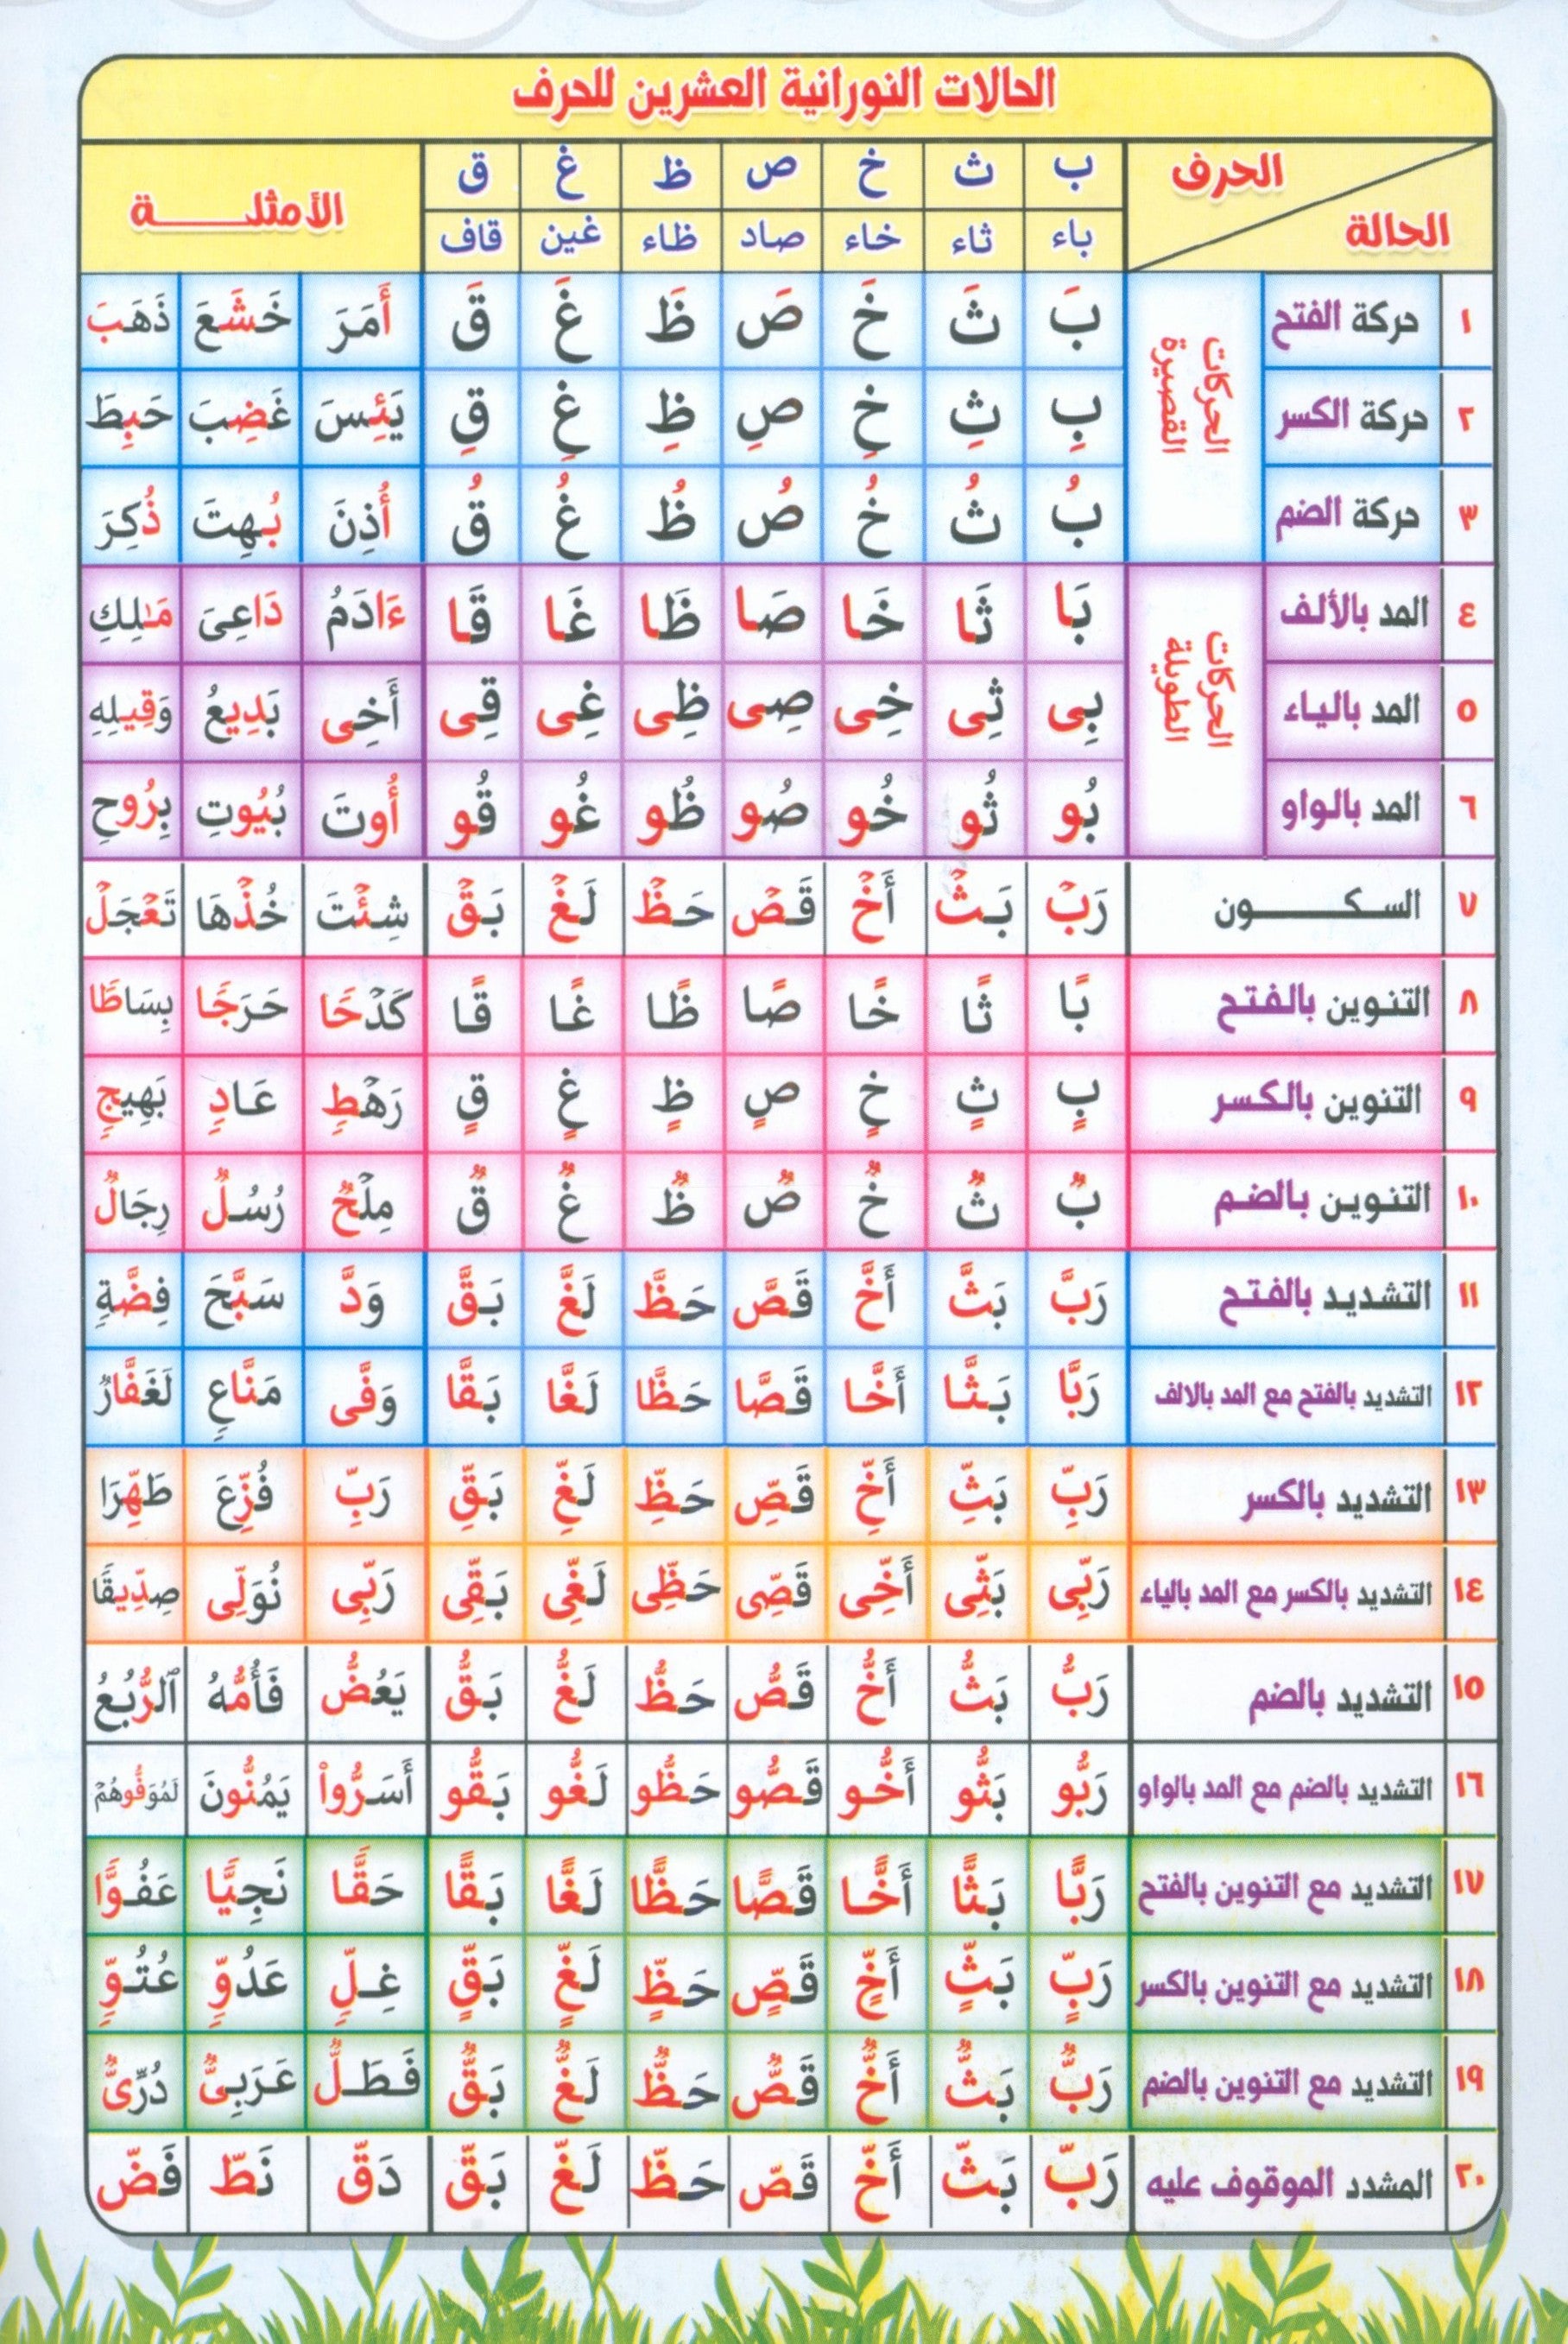 الحالات النورانية العشرين للحرف
الحرف ب ث خ ص ظ غ ق الأمثلة
الحالة باء ثاء خاء صاد ظاء غين قاف
الحركات القصيرة
١ حركة الفتح بَ ثَ خَ صَ ظَ غَ قَ أَمَرَ خَشَعَ ذَهَبَ
٢ حركة الكسر بِ ثِ خِ صِ ظِ غِ قِ يَئِسَ غَضِبَ حَبِطَ
٣ حركة الضم بُ ثُ خُ صُ ظُ غُ قُ أُذِنَ بُهِتَ ذُكِرَ
الحركات الطويلة
٤ المد بالألف بَا ثَا خَا صَا ظَا غَا قَا ءَادَمُ دَاعِىَ مَـٰلِكِ
٥ المد بالياء بِى ثِى خِى صِى ظِى غِى قِى أَخِى بَدِيعُ وَقِيلِهِ
٦ المد بالواو بُو ثُو خُو صُو ظُو غُو قُو أُوتَ بُيُوتِ بِرُوحِ
٧ السكون رَبْ بَثْ أَخْ قَصْ حَظْ لَغْ بَقْ شِئْتَ خُذْهَا تَعْجَلْ
٨ التنوين بالفتح بًا ثًا خًا صًا ظًا غًا قًا كَدْحًا حَرَجًا بِسَاطًا
٩ التنوين بالكسر بٍ ثٍ خٍ صٍ ظٍ غٍ قٍ رَهْطٍ عَادٍ بَهِيجٍ
١٠ التنوين بالضم بٌ ثٌ خٌ صٌ ظٌ غٌ قٌ مِلْحٌ رُسُلٌ رِجَالٌ
١١ التشديد بالفتح رَبَّ بَثَّ أَخَّ قَصَّ حَظَّ لَغَّ بَقَّ وَدَّ سَبَّحَ فِضَّةِ
١٢ التشديد بالفتح مع المد بالالف رَبَّا بَثَّا أَخَّا قَصَّا حَظَّا لَغَّا بَقَّا وَفَّى مَنَّاعِ لَغَفَّارٌ
١٣ التشديد بالكسر رَبِّ بَثِّ أَخِّ قَصِّ حَظِّ لَغِّ بَقِّ رَبِّ فُزِّعَ طَهِّرَا
١٤ التشديد بالكسر مع المد بالياء رَبِّى بَثِّى أَخِّى قَصِّى حَظِّى لَغِّى بَقِّى رَبِّى نُوَلِّى صِدِّيقًا
١٥ التشديد بالضم رَبُّ بَثُّ أَخُّ قَصُّ حَظُّ لَغُّ بَقُّ يَعُضُّ فَأُمُّهُ ٱلرُّبُعُ
١٦ التشديد بالضم مع المد بالواو رَبُّو بَثُّو أَخُّو قَصُّو حَظُّو لَغُّو بَقُّو أَسَرُّواْ يَمُنُّونَ لَمُوَفُّوهُمْ
١٧ التشديد مع التنوين بالفتح رَبًّا بَثًّا أَخًّا قَصًّا حَظًّا لَغًّا بَقًّا حَقًّا نَجِيًّا عَفُوًّا
١٨ التشديد مع التنوين بالكسر رَبٍّ بَثٍّ أَخٍّ قَصٍّ حَظٍّ لَغٍّ بَقٍّ غِلٍّ عَدُوٍّ عُتُوٍّ
١٩ التشديد مع التنوين بالضم رَبٌّ بَثٌّ أَخٌّ قَصٌّ حَظٌّ لَغٌّ بَقٌّ فَطَلٌّ عَرَبِىٌّ دُرِّىٌّ
٢٠ المشدد الموقوف عليه رَبّ بَثّ أَخّ قَصّ حَظّ لَغّ بَقّ دَقّ نَطّ فَضّ